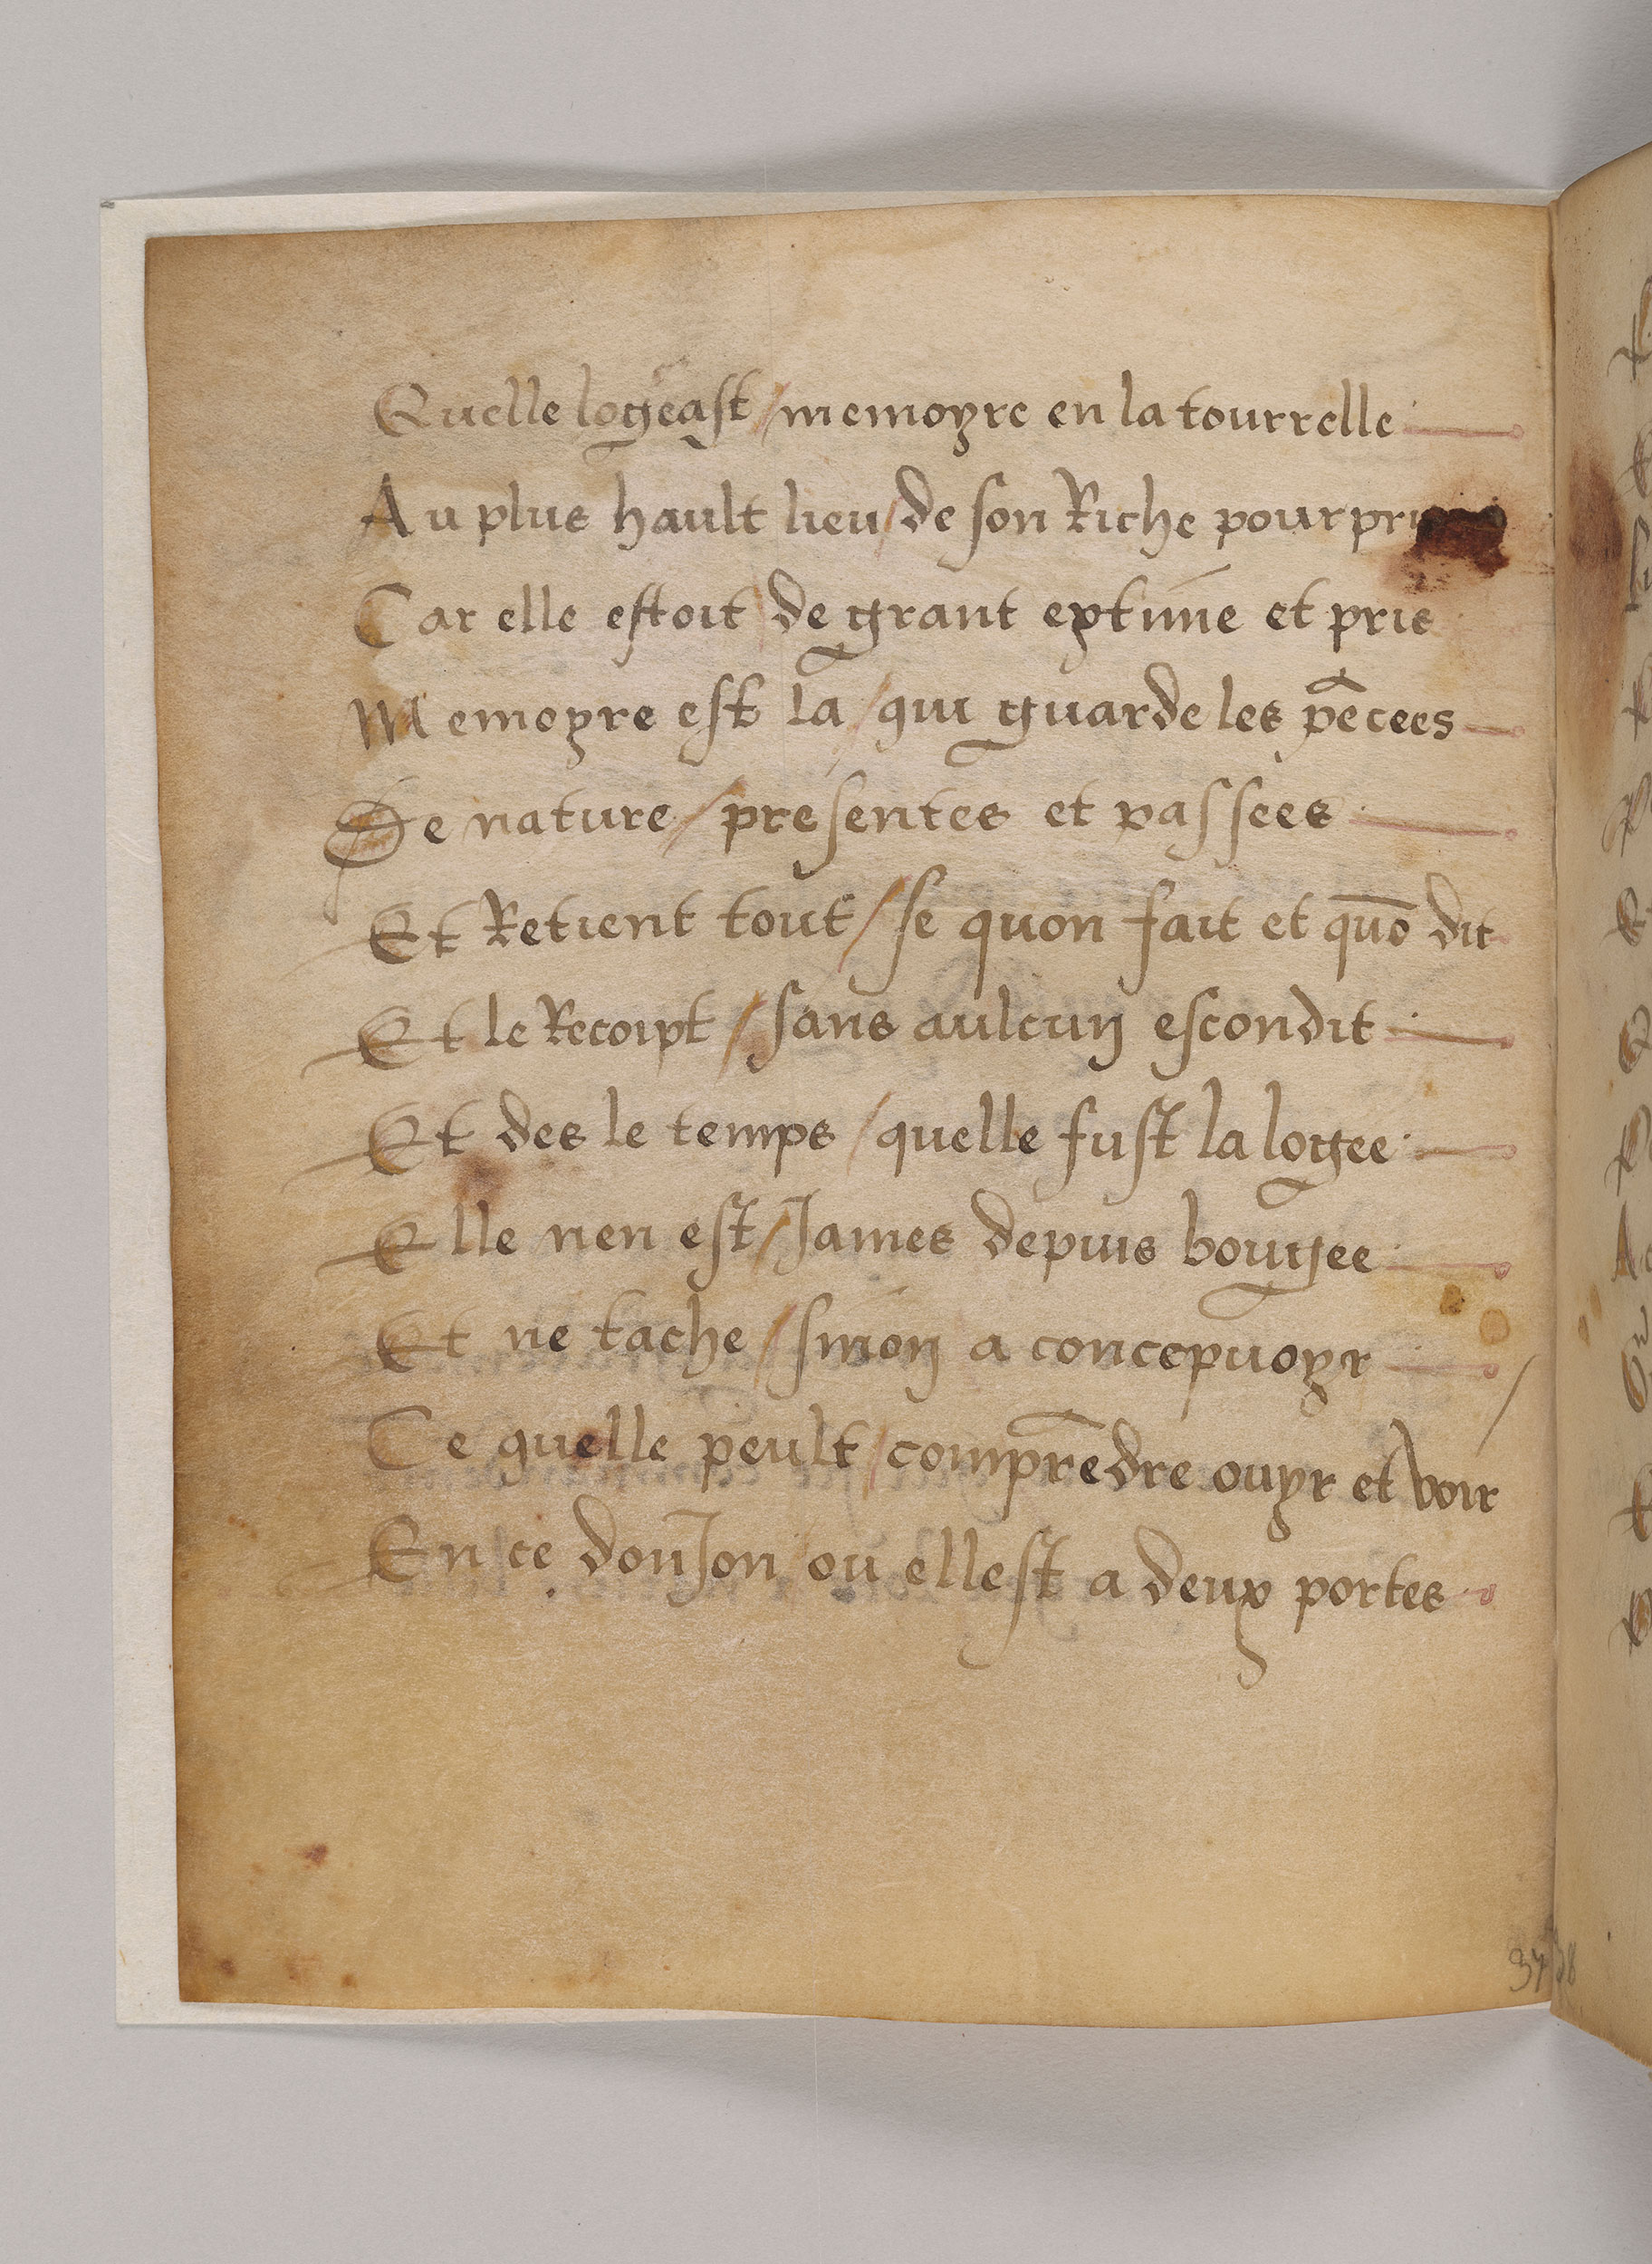 Quelle logeast / memoyre en la tourrelle
Au plus hault lieu / de son Riche
Car elle estoit / de grant extime et pris
Memoyre est la / qui guarde les pēcees
De nature / presentes et passees
Et Retient tout / se quon fait et quō dit
Et le Recoipt / sans aulcun escondit
Et des le temps / quelle fust la logee
Elle nen est / James depuis bougee
Et ne tache / sinon a concepuoyr
Ce quelle peult / comprēdre ouyr et voir
En ce donJon / ou ellest a deux portes
37
38